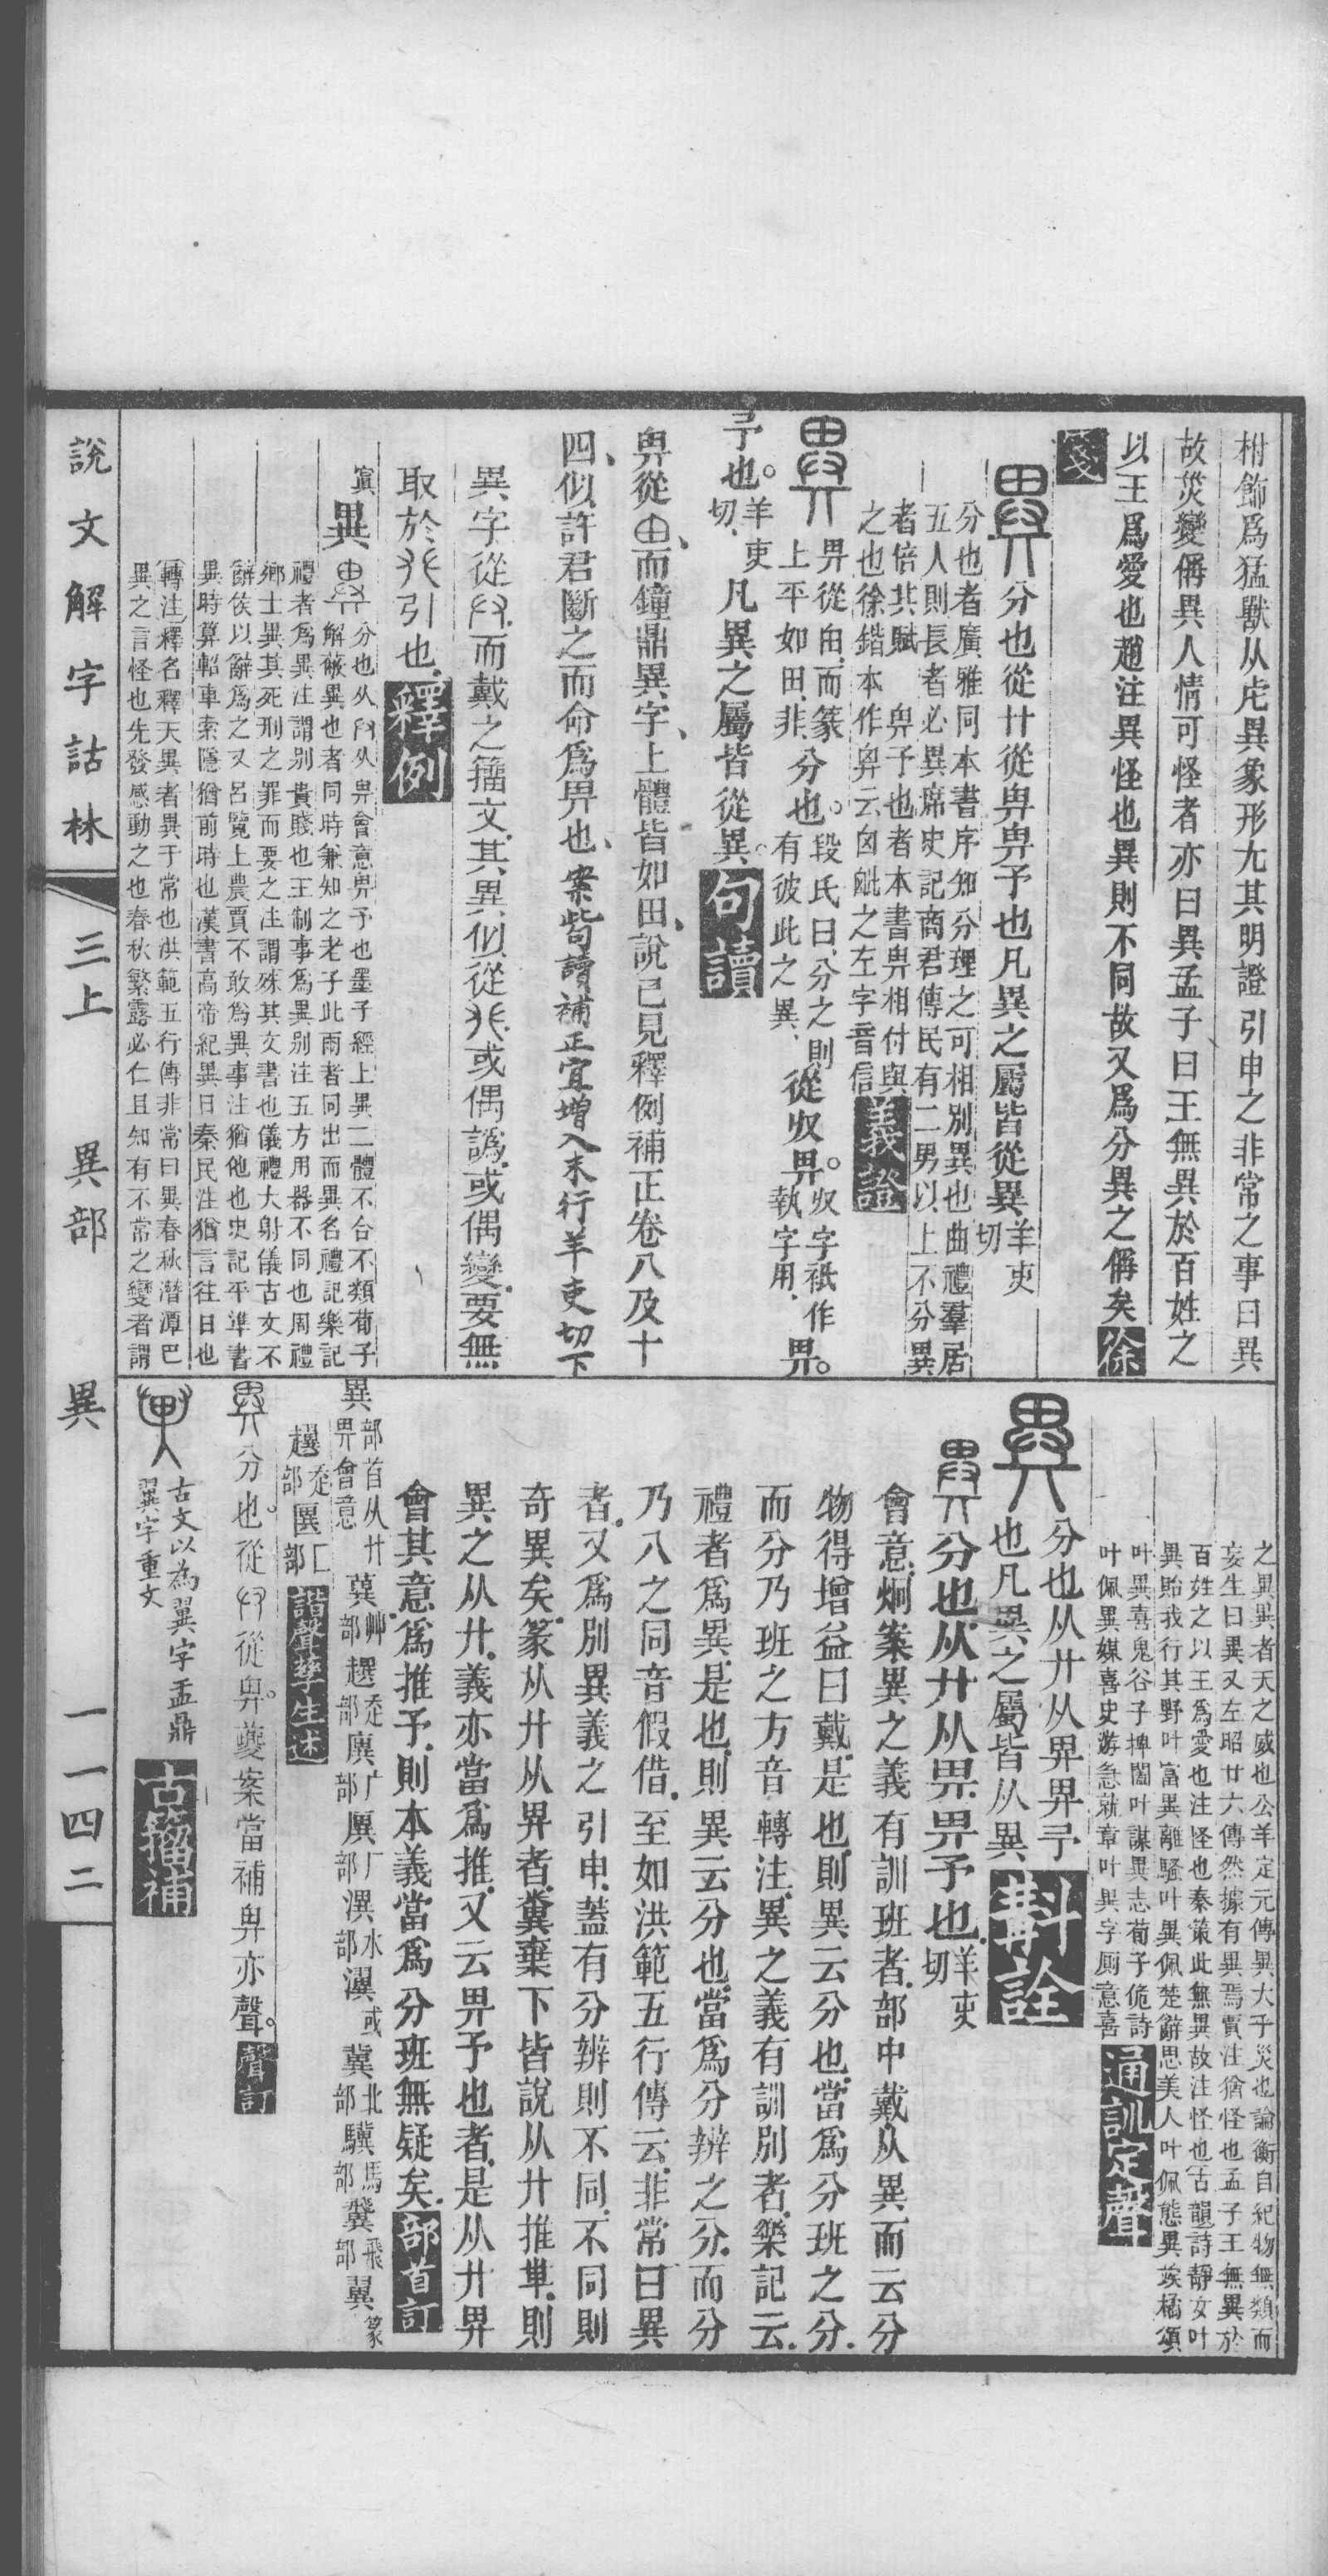 柎飾爲猛獸从虍異象形尢其明證引申之非常之事曰異
故災變偁異人情可怪者亦曰異孟子曰王無異於百姓之
以王爲愛也趙注異怪也異則不同故又爲分異之偁矣徐
箋
分也從廾從畀畀予也凡異之屬皆從異羊吏切
分也者廣雅同本書序知分理之可相別異也曲禮羣居
五人則長者必異席史記商君傳民有二男以上不分異
者倍其賦 畀予也者本書畀相付與
之也徐鍇本作異云囟𣬉之左字音信義證
畀從甶而篆
上平如田非分也。段氏曰分之則
有彼此之異從収畀。収字祗作
執字用畀。
予也。羊吏切凡異之屬皆從異。句讀
畀從甶而鐘鼎異字上體皆如田說已見釋例補正卷八及十
四似許君斷之而命爲畀也案句讀補正宜增入末行羊吏切下
異字從𦥑而戴之籀文其異似從癶或偶譌或偶變要無
取於癶引也釋例
異分也从𦥑从畀會意畀予也墨子經上異二體不合不類荀子
解蔽異也者同時兼知之老子此兩者同出而異名禮記樂記
禮者爲異注謂別貴賤也王制事爲異別注五方用器不同也周禮
鄉士異其死刑之罪而要之注謂殊其文書也儀禮大射儀古文不
辭侯以辭爲之又呂覽上農賈不敢爲異事注猶他也史記平準書
異時算軺車索隱猶前時也漢書高帝紀異日秦民注猶言往日也
轉注釋名釋天異者異于常也洪範五行傳非常曰異春秋潛潭巴
異之言怪也先發感動之也春秋繁露必仁且知有不常之變者謂
之異異者天之威也公羊定元傳異大乎災也論衡自紀物無類而
妄生曰異又左昭廿六傳然據有異焉賈注猶怪也孟子王無異於
百姓之以王爲愛也注怪也秦策此無異故注怪也古韻詩靜女叶
異貽我行其野叶富異離騷叶異佩楚辭思美人叶佩態異竢橘頌
叶異喜鬼谷子捭闔叶謀異志荀子佹詩
叶佩異媒喜史游急就章叶異字廁意喜通訓定聲
分也从廾从畀畀予
也凡異之屬皆从異斠詮
分也从廾从畀畀予也羊吏切
會意炯案異之義有訓班者部中戴从異而云分
物得增益曰戴是也則異云分也當爲分班之分
而分乃班之方音轉注異之義有訓別者樂記云
禮者爲異是也則異云分也當爲分辨之分而分
乃八之同音假借至如洪範五行傳云非常曰異
者又爲別異義之引申蓋有分辨則不同不同則
奇異矣篆从廾从畀者糞棄下皆說从廾推𠦒則
異之从廾義亦當爲推又云畀予也者是从廾畀
會其意爲推予則本義當爲分班無疑矣部首訂
異部首从廾畀會意 䔬艸部 趩辵部 廙广部 㕓厂部 潩水部 瀷或 冀北部 驥馬部 䴡飛部 翼篆
趩辵部 匴匚部 諧聲孳生述
分也。從𦥑從畀。夔案當補畀亦聲。聲訂
古文以為翼字盂鼎
異字重文古籀補
說文解字詁林 三上 異部 異 一一四二